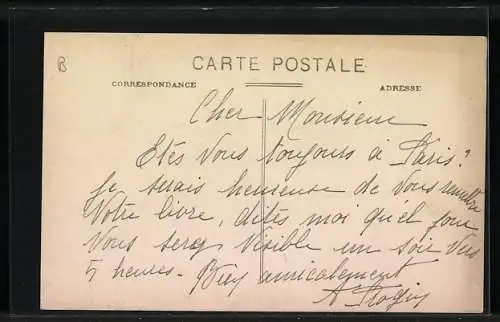 B
CARTE POSTALE
CORRESPONDANCE
ADRESSE
Cher Monsieur
Etes Vous toujours à Paris ?
Je serais heureuse de Vous remettre
Votre livre, dites moi quel jour
Vous serez Visible un soir vers
5 heures - Bien amicalement